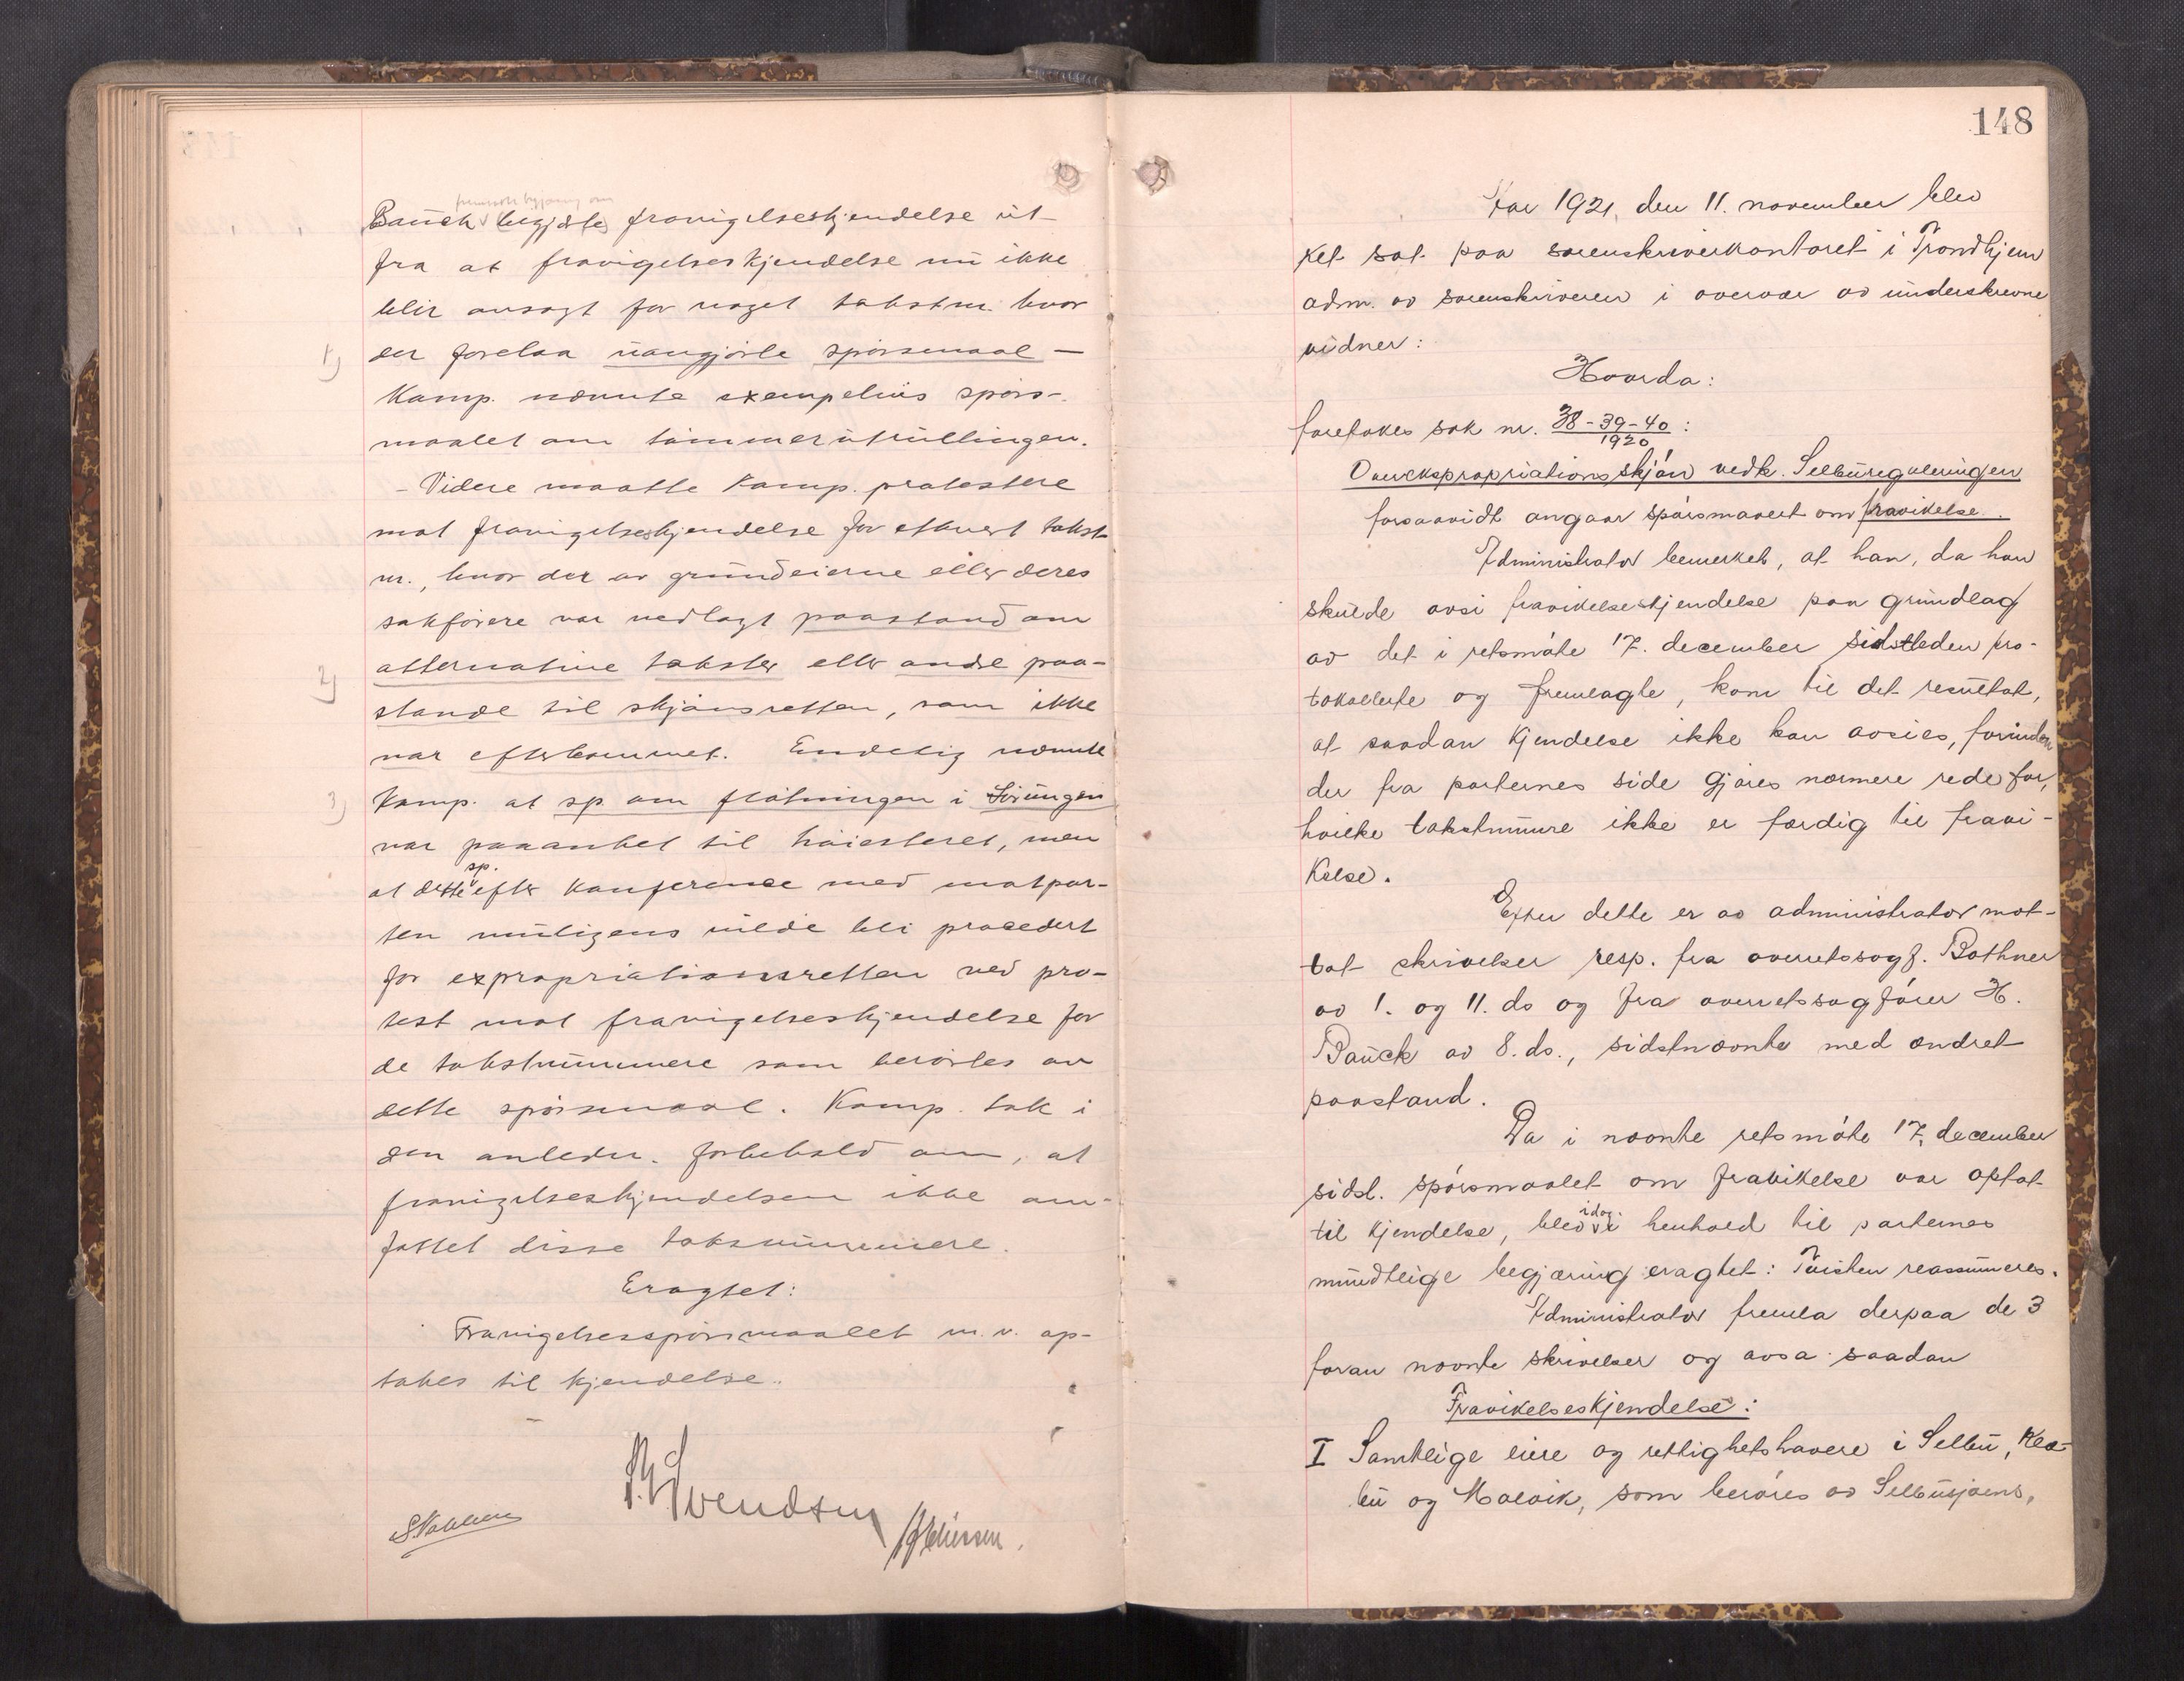 fremsatte begjæring om
Bauck (begjærte) fravigelseskjendelse ut-
fra at fravigelseskjendelse nu ikke
blir avsagt for noget takstnr. hvor
1) der forelaa uavgjorte spörsmaal —
Komp. nævnte exempelvis spörs-
maalet om tömmerutrullingen.
- Videre maatte Komp. protestere
mot fravigelseskjendelse for ethvert takst-
nr., hvor der av grundeierne eller deres
sakförere var nedlagt paastand om
2) alternative takster eller andre paa-
stande til skjönsretten, som ikke
var efterkommet. Endelig nævnte
3) Komp. at sp. om flötningen i Sörungen
var paaanket til höiesteret, men
at dette sp. efter konference med motpar-
ten muligens vilde bli procedert
for expropriationsretten ved pro-
test mot fravigelseskjendelse for
de takstnummere som berörtes av
dette spörsmaal. Komp. tok i
den anledn. forbehold om, at
fravigelseskjendelsen ikke om-
fattet disse takstnummere.
Eragtet:
Fravigelsesspörsmaalet m. v. op-
takes til kjendelse.
Svendsen
148
Aar 1921, den 11. november blev
ret sat paa sorenskriverkontoret i Trondhjem
adm. av sorenskriveren i overvær av underskrevne
vidner:
Hvorda:
foretokes sak nr. 38-39-40/1920:
Overekspropriationsskjön vedk. Selbureguleringen
forsaavidt angaar spörsmaalet om fravikelse.
Administrator bemerket, at han, da han
skulde avsi fravikelseskjendelse paa grundlag
av det i retsmöte 17. december sidstleden pro-
tokollerte og fremlagte, kom til det resultat,
at saadan kjendelse ikke kan avsies, forinden
der fra parternes side gjöres nærmere rede for,
hvilke takstnumre ikke er færdig til fravi-
kelse.
Efter dette er av administrator mot-
tat skrivelser resp. fra overretssagf. Bothner
av 1. og 11. ds og fra overretssagförer H.
Bauck av 8. ds., sidstnævnte med ændret
paastand.
Da i nævnte retsmöte 17. december
sidstl. spörsmaalet om fravikelse var optat
til kjendelse, blev idag i henhold til parternes
mundtlige begjæring eragtet: Tvisten reassumeres.
Administrator fremla derpaa de 3
foran nævnte skrivelser og avsa saadan
Fravikelseskjendelse:
I Samtlige eiere og rettighetshavere i Selbu, Klæ-
bu og Malvik, som beröres av Selbusjöens,